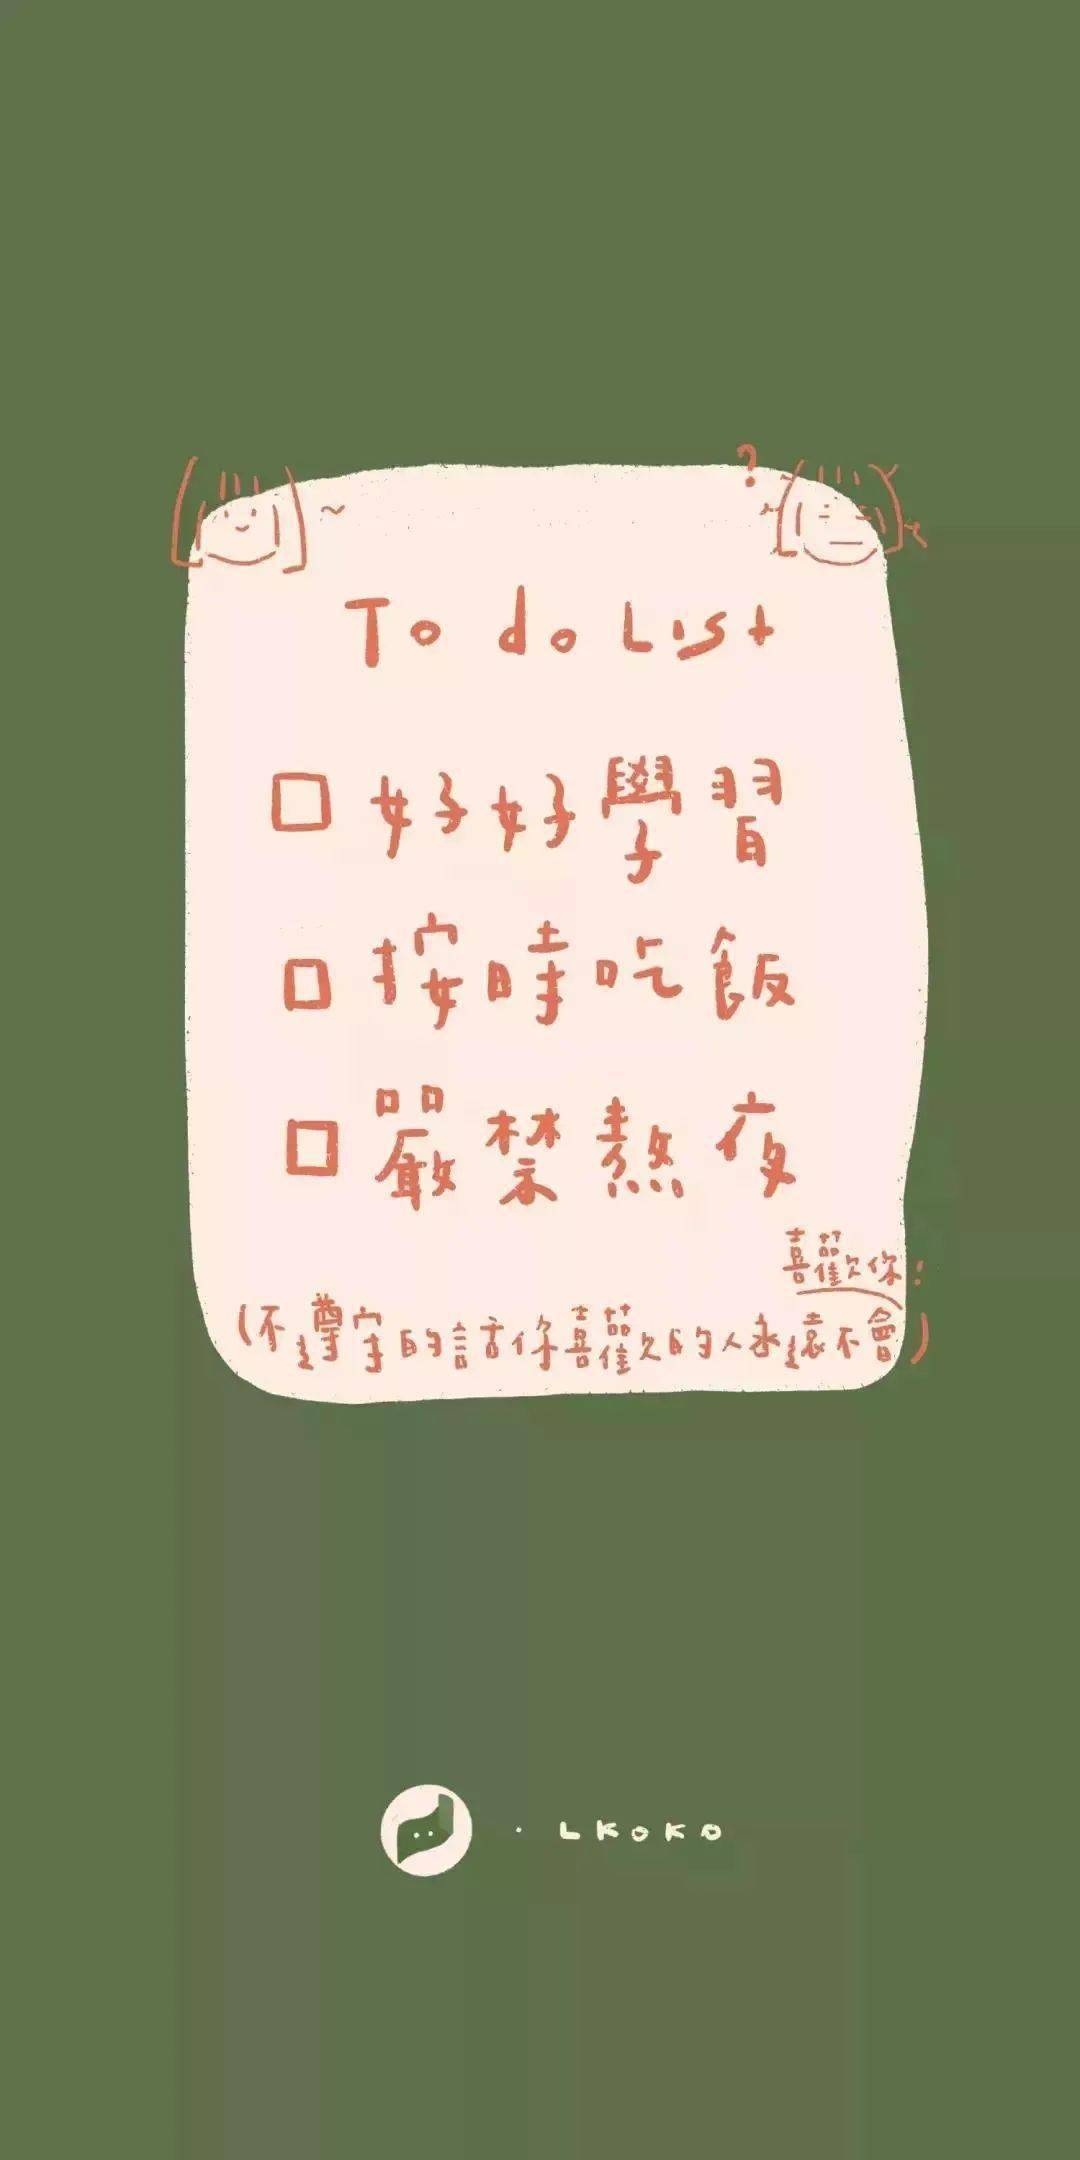 ?
To do List
好好學習
按時吃飯
嚴禁熬夜
(不遵守的話你喜歡的人永遠不會)
喜歡你!
· LKOKO